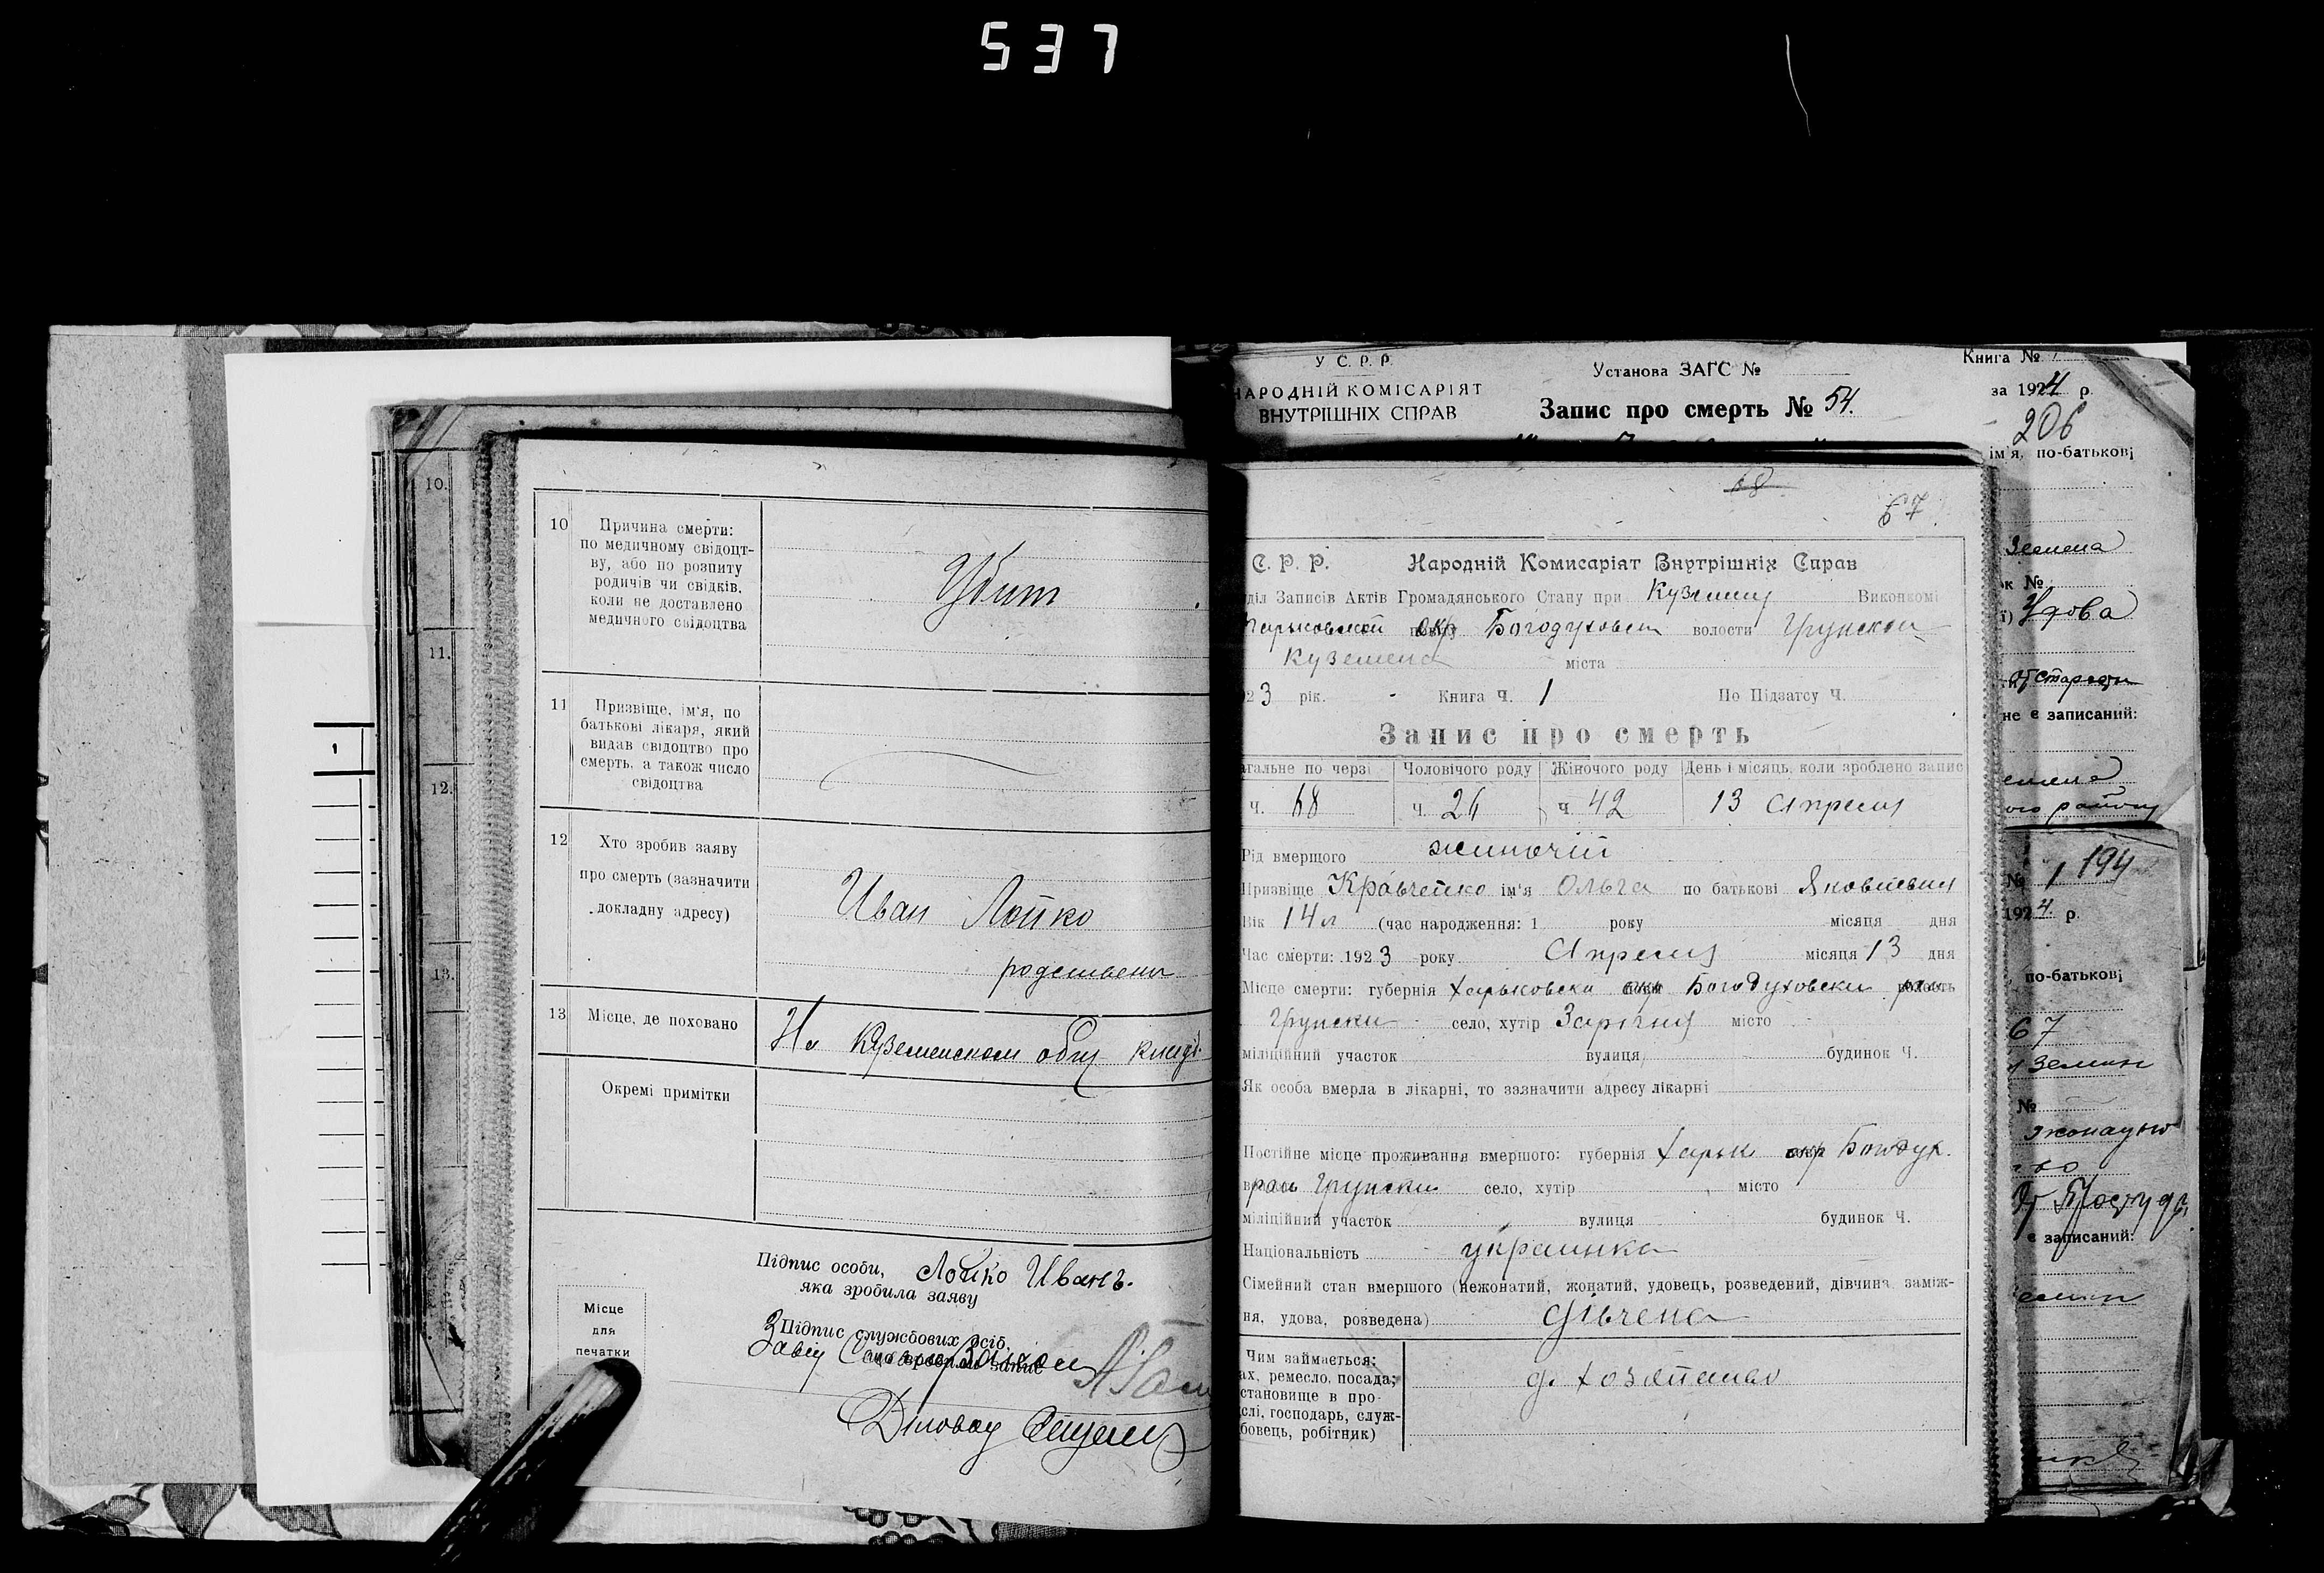 537
10.
11.
12.
13.
1
10 Причина смерти:
по медичному свідоцт-
ву, або по розпиту
родичів чи свідків,
коли не доставлено
медичного свідоцтва
Убит
11 Призвіще, ім'я, по
батькові лікаря, який
видав свідоцтво про
смерть, а також число
свідоцтва
12 Хто зробив заяву
про смерть (зазначити
докладну адресу)
Иван Лойко
родственн
13 Місце, де поховано
На Куземенском общ кладб.
Окремі примітки
Підпис особи, Лойко Иванъ.
яка зробила заяву
Підпис службових осіб,
що зробили запис
Завід
Діловод
Місце
для
печатки
У С. Р. Р.
НАРОДНІЙ КОМІСАРІЯТ
ВНУТРІШНІХ СПРАВ
Установа ЗАГС №
Запис про смерть № 54.
Книга №
за 1924 р.
206
ім'я, по-батькові
68
67
С. Р. Р. Народній Комисаріят Внутрішніх Справ
діл Записів Актів Громадянського Стану при Куземин Виконкомі
Харьковской окр Богодуховск волости Грунской
Куземена міста
23 рік. Книга Ч. 1 По Підзагсу Ч.
Запис про смерть
агальне по черзі Чоловічого роду Жіночого роду День і місяць, коли зроблено запис
ч. 68 ч. 26 ч. 42 13 Апреля
Рід вмерщого жиночій
Призвіще Кравченко ім'я Ольга по батькові Яковлевна
Вік 14 л (час народження: 1 року місяця дня
Час смерти: 1923 року Апреля місяця 13 дня
Місце смерти: губернія Харьковска окр Богодуховски
Грунски село, хутір Заричня місто
міліційний участок вулиця будинок Ч.
Як особа вмерла в лікарні, то зазначити адресу лікарні
Постійне місце проживання вмершого: губернія Харьк окр Богодух.
Грунски село, хутір місто
міліційний участок вулиця будинок Ч.
Національність украинка
Сімейний стан вмершого (нежонатий, жонатий, удовець, розведений, дівчина, заміж-
ня, удова, розведена) дівчена
Чим займається:
ах, ремесло, посада;
становище в про-
слі, господарь, служ-
бовець, робітник)
д. хозяйство
к №
Удова
не є записаний:
№ 1 194
1924. р.
по-батькові
67
№
є записаний: